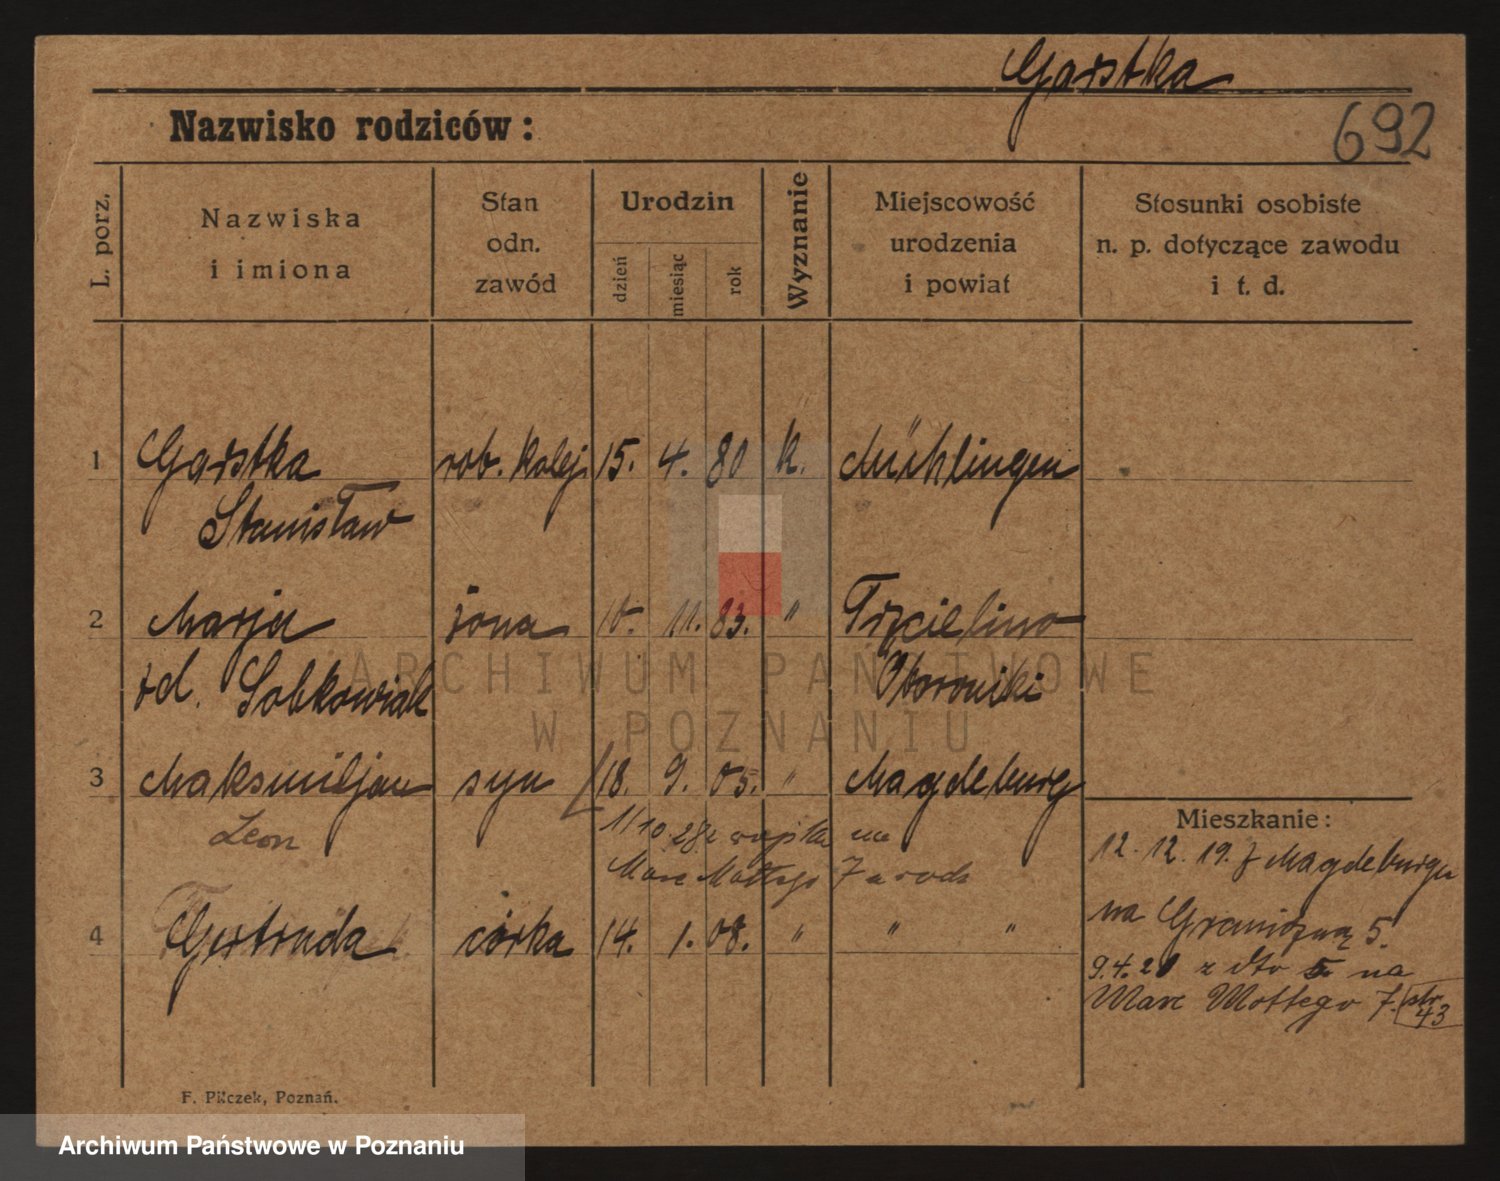 Garstka
692
Nazwisko rodziców:
L. porz.
Nazwiska
i imiona
Stan
odn.
zawód
Urodzin
dzień
miesiąc
rok
Wyznanie
Miejscowość
urodzenia
i powiat
Stosunki osobiste
n. p. dotyczące zawodu
i t. d.
1 Garstka rob. kolej. 15. 4. 80 k. Mühlingen
Stanisław
2 Marja żona 10. 11. 83. " Trzcielino
rd. Sobkowiak Oborniki
3 Maksmiljan syn 18. 9. 05. " Magdeburg
Leon
1/10 28 z wojska na
Marc Mottego 7
4 Gertruda córka 14. 1. 08. " " "
Mieszkanie:
12. 12. 19. z Magdeburga
na Graniczną 5.
9.4.21 z dto 5 na
Marc Mottego 7. str.
43
F. Pilczek, Poznań.
ARCHIWUM PAŃSTWOWE
W POZNANIU
Archiwum Państwowe w Poznaniu